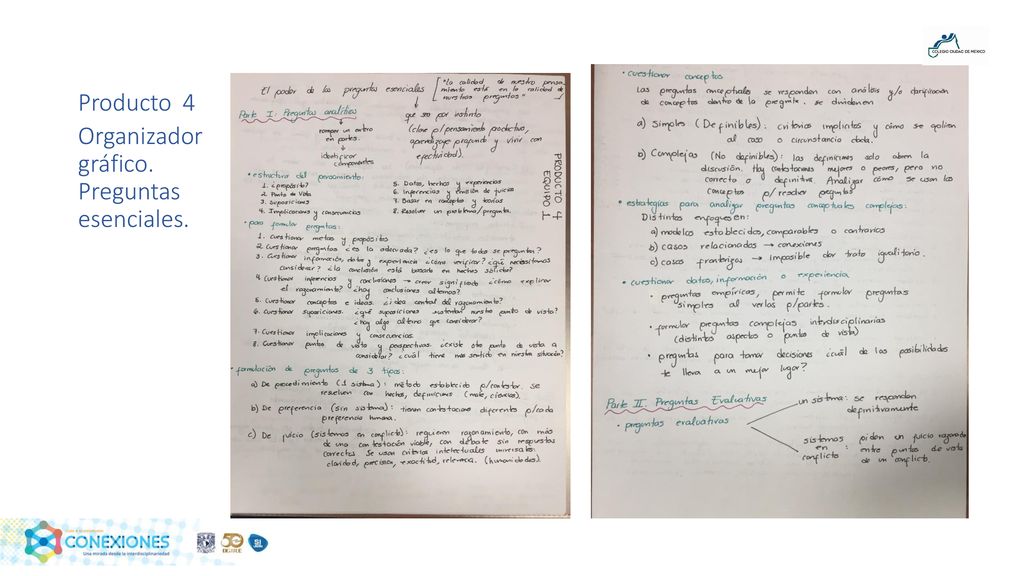 COLEGIO CIUDAD DE MEXICO
Producto 4
Organizador
gráfico.
Preguntas
esenciales.
El poder de las preguntas esenciales
"La calidad de nuestro pensa-
miento está en la calidad de
nuestras preguntas"
Parte I: Preguntas analíticas
que son por instinto
romper un entero
en partes.
identificar
componentes
(clave p/pensamiento productivo,
aprendizaje profundo y vivir con
efectividad).
PRODUCTO 4
EQUIPO 1
• estructura del pensamiento:
1. ¿propósito?
2. Punto de Vista
3. Suposiciones
4. Implicaciones y consecuencias
5. Datos, hechos y experiencias
6. Inferencias y emisión de juicios
7. Basar en conceptos y teorías
8. Resolver un problema/pregunta.
• para formular preguntas:
1. Cuestionar metas y propósitos
2. Cuestionar preguntas ¿es la adecuada? ¿es lo que todos se preguntan?
3. Cuestionar información, datos y experiencia ¿cómo verificar? ¿qué necesitamos
considerar? ¿la conclusión está basada en hechos sólidos?
4. Cuestionar inferencias y conclusiones → crear significado ¿cómo explicar
el razonamiento? ¿hay conclusiones alternas?
5. Cuestionar conceptos e ideas. ¿idea central del razonamiento?
6. Cuestionar suposiciones. ¿qué suposiciones sustentan nuestro punto de vista?
¿hay algo alterno que considerar?
7. Cuestionar implicaciones y consecuencias.
8. Cuestionar puntos de vista y perspectivas ¿existe otro punto de vista a
considerar? ¿cuál tiene más sentido en nuestra situación?
• formulación de preguntas de 3 tipos:
a) De procedimiento (1 sistema): método establecido p/contestar. Se
resuelven con hechos, definiciones (mate, ciencias).
b) De preferencia (sin sistema): tienen contestaciones diferentes p/cada
preferencia humana.
c) De juicio (sistemas en conflicto): requieren razonamiento, con más
de una contestación viable, con debate sin respuestas
correctas. Se usan criterios intelectuales universales:
claridad, precisión, exactitud, relevancia. (humanidades).
• cuestionar conceptos
Las preguntas conceptuales se responden con análisis y/o clarificación
de conceptos dentro de la pregunta. Se dividen en
a) Simples (Definibles): criterios implícitos y cómo se aplican
al caso o circunstancia dada.
b) Complejas (No definibles): las definiciones solo abren la
discusión. Hay contestaciones mejores o peores, pero no
correcta o definitiva. Analizar cómo se usan los
conceptos p/ resolver preguntas
• estrategias para analizar preguntas conceptuales complejas:
Distintos enfoques en:
a) modelos establecidos, comparables o contrarios
b) casos relacionados → conexiones
c) casos fronterizos → imposible dar trato igualitario.
• cuestionar datos, información o experiencia
• preguntas empíricas, permite formular preguntas
simples al verlos p/partes.
• formular preguntas complejas interdisciplinarias
(distintos aspectos o puntos de vista)
• preguntas para tomar decisiones ¿cuál de las posibilidades
te lleva a un mejor lugar?
Parte II. Preguntas Evaluativas
• preguntas evaluativas
un sistema: se responden
definitivamente
sistemas
en
conflicto
: piden un juicio razonado
entre puntos de vista
de un conflicto.
CONEXIONES
Una mirada desde la interdisciplinariedad
50
DGIRE